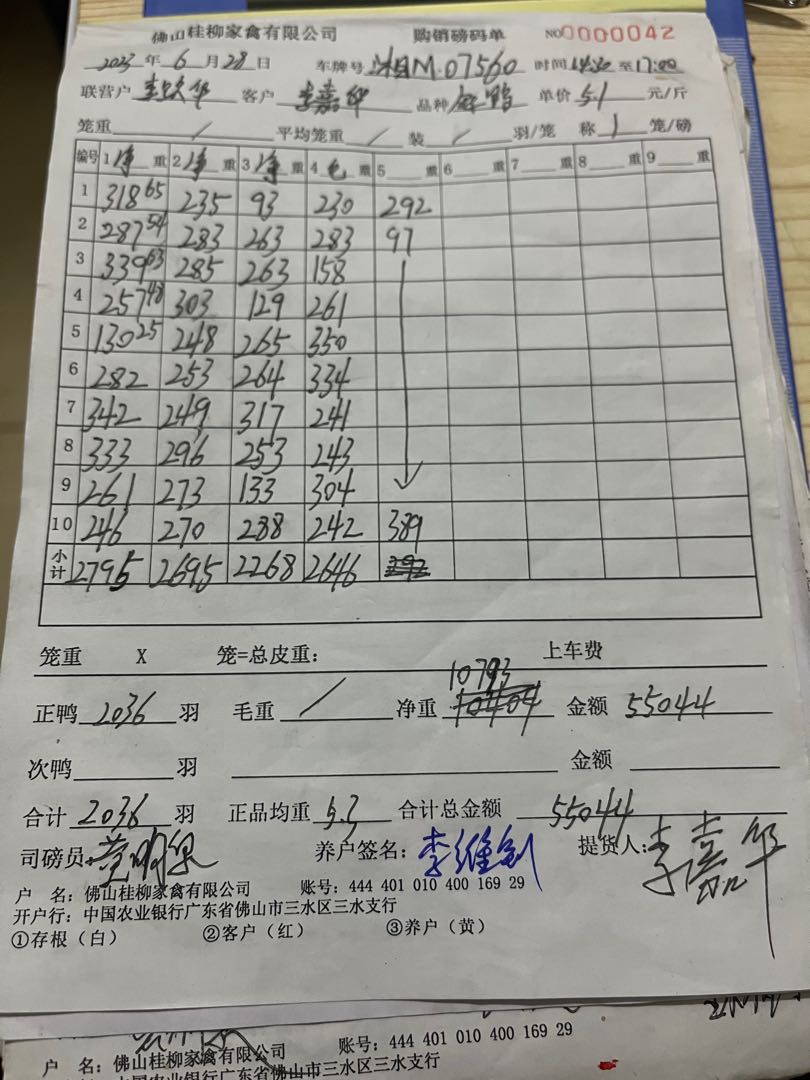 佛山桂柳家禽有限公司 购销磅码单 NO0000042
2023年6月28日 车牌号 湘M.07560 时间 14:30 至17:00
联营户 客户 李嘉华 品种 单价 5.1 元/斤
笼重 / 平均笼重 / 装 / 羽/笼 称 1 笼/磅
编号 1净重 2净重 3净重 4毛重 5 重 6 重 7 重 8 重 9 重
1 318 65 235 93 230 292
2 287 54 283 263 283 97
3 339 63 285 263 158
4 257 48 303 129 261
5 130 25 248 265 350
6 282 253 264 334
7 342 249 317 241
8 333 296 253 243
9 261 273 133 304
10 246 270 288 242 389
小计 2795 2695 2268 2646 292
笼重 X 笼=总皮重: 上车费
10793
正鸭 2036 羽 毛重 / 净重 10404 金额 55044
次鸭 羽 金额
合计 2036 羽 正品均重 5.3 合计总金额 55044
司磅员: 养户签名: 李维剑 提货人: 李嘉华
户 名: 佛山桂柳家禽有限公司 账号: 444 401 010 400 169 29
开户行: 中国农业银行广东省佛山市三水区三水支行
①存根(白) ②客户(红) ③养户(黄)
户 名: 佛山桂柳家禽有限公司 账号: 444 401 010 400 169 29
中国农业银行广东省佛山市三水区三水支行